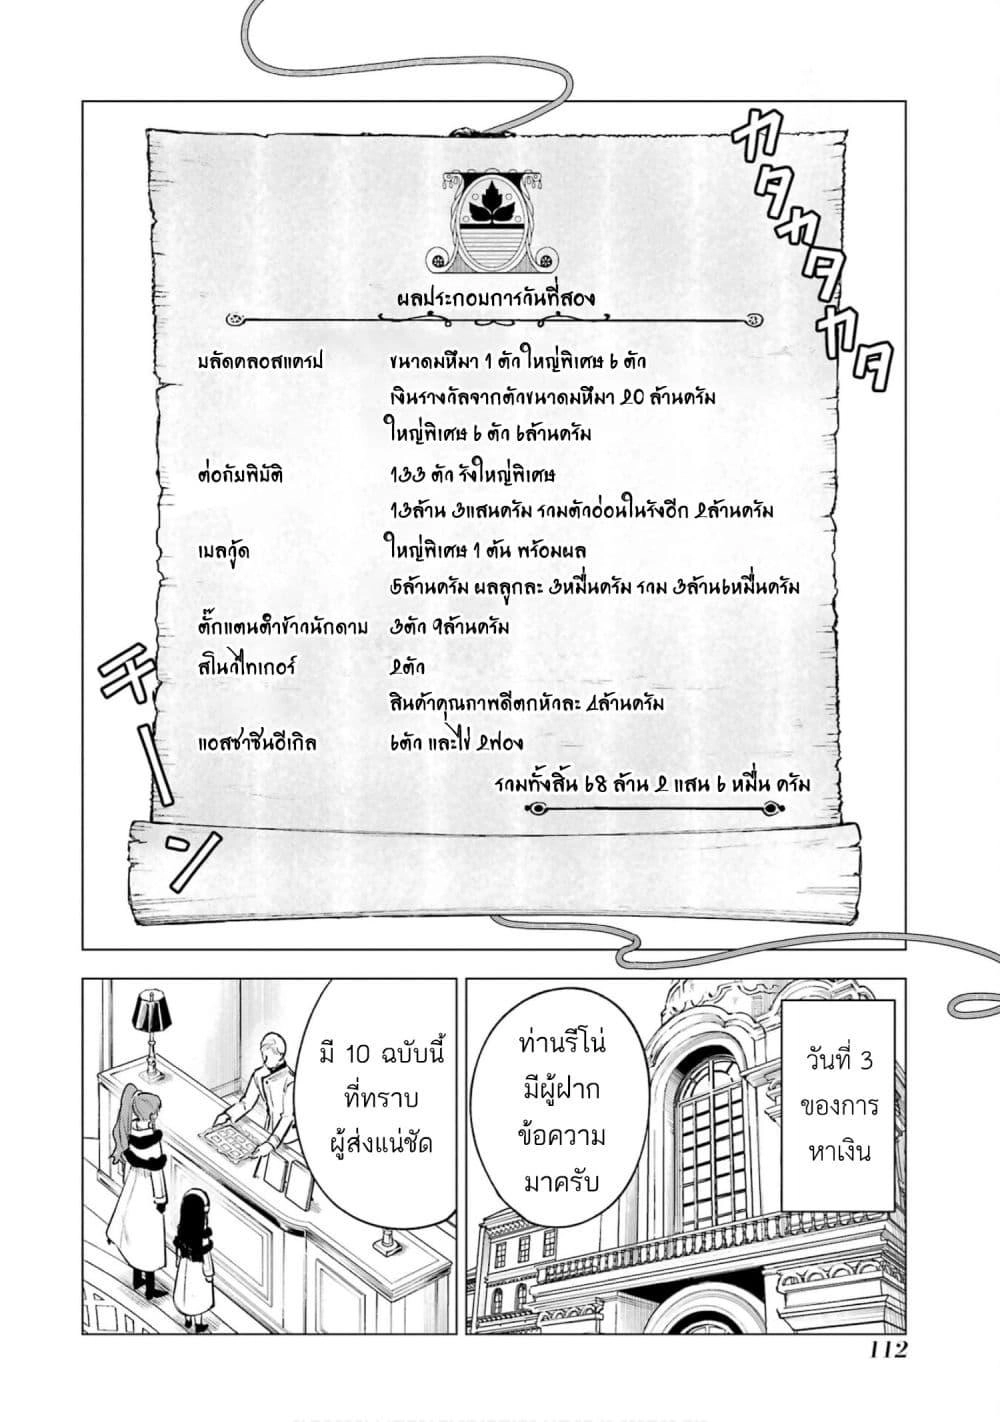 カタカタカタカタ
ผลประกอบการวันที่สอง
บลัดคลอสแครป ขนาดมหึมา 1 ตัว ใหญ่พิเศษ 6 ตัว
เงินรางวัลจากตัวขนาดมหึมา 20 ล้านดรัม
ใหญ่พิเศษ 6 ตัว 6ล้านดรัม
ต่อกัมพิมัติ 133 ตัว รังใหญ่พิเศษ
13ล้าน 3แสนดรัม รวมตัวอ่อนในรังอีก 2ล้านดรัม
เมลวู้ด ใหญ่พิเศษ 1 ต้น พร้อมผล
5ล้านดรัม ผลลูกละ 3หมื่นดรัม รวม 3ล้าน6หมื่นดรัม
ตั๊กแตนตำข้าวนักดาบ 3ตัว 9ล้านดรัม
สโนว์ไทเกอร์ 2ตัว
สินค้าคุณภาพดีตกหัวละ 4ล้านดรัม
แอสซาซินอีเกิล 6ตัว และไข่ 2ฟอง
รวมทั้งสิ้น 68 ล้าน 2 แสน 6 หมื่น ดรัม
チーン
วันที่ 3
ของการ
หาเงิน
ท่านรีโน่
มีผู้ฝาก
ข้อความ
มาครับ
มี 10 ฉบับนี้
ที่ทราบ
ผู้ส่งแน่ชัด
112